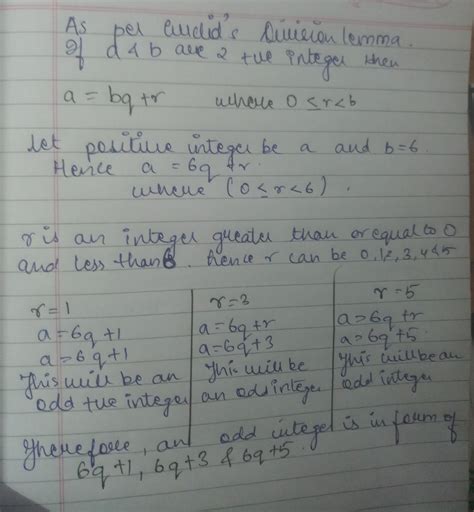 As per Euclid's Division lemma.
If d & b are 2 +ve integer then
a = bq+r where 0 ≤ r < b
let positive integer be a and b=6.
Hence a = 6q +r.
where (0 ≤ r < 6).
r is an integer greater than or equal to 0
and less than 6. hence r can be 0,1,2,3,4 & 5
r=1
a=6q+1
a=6q+1
This will be an
odd +ve integer
r=3
a=6q+r
a=6q+3
This will be
an odd integer
r=5
a=6q+r
a=6q+5.
This will be an
odd integer
Therefore, an odd integer is in form of
6q+1, 6q+3 & 6q+5.